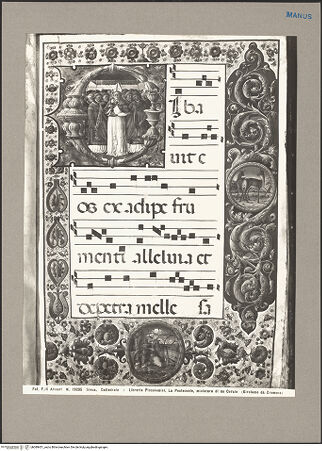 MANUS
Iba
uit e
os ex adipe fru
menti alleluia et
de petra melle sa
Siena. Cattedrale - Libreria Piccolomini. La Pentecoste, miniatura di un Corale. (Girolamo da Cremona)